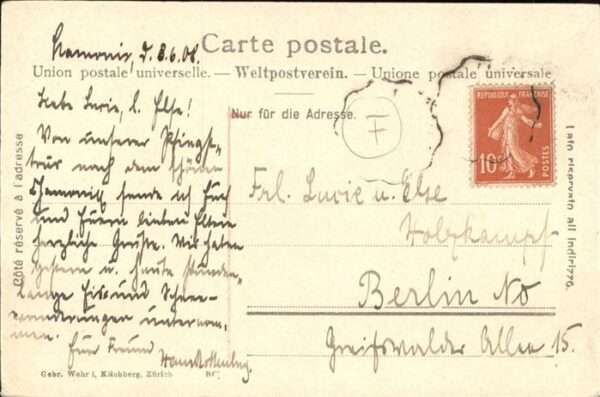 Chamonix, d. 8.6.08.
Carte postale.
Union postale universelle. — Weltpostverein. — Unione postale universale
Nur für die Adresse.
Côté réservé à l'adresse
Lato riservato all'indirizzo.
F
REPUBLIQUE FRANÇAISE
10
POSTES
Liebe Lucie, l. Else!
Von unserer Pfingst-
tour nach dem schönen
Chamonix sende ich Euch
und Euern lieben Eltern
herzliche Grüße. Wir haben
gestern u. heute stunden-
lange Eis und Schnee-
wanderungen unternom-
men.
Euer Freund
Frl. Lucie u. Else
Holzkampf
Berlin NO
Greifswalder Allee 15.
Gebr. Wehrli, Kilchberg, Zürich